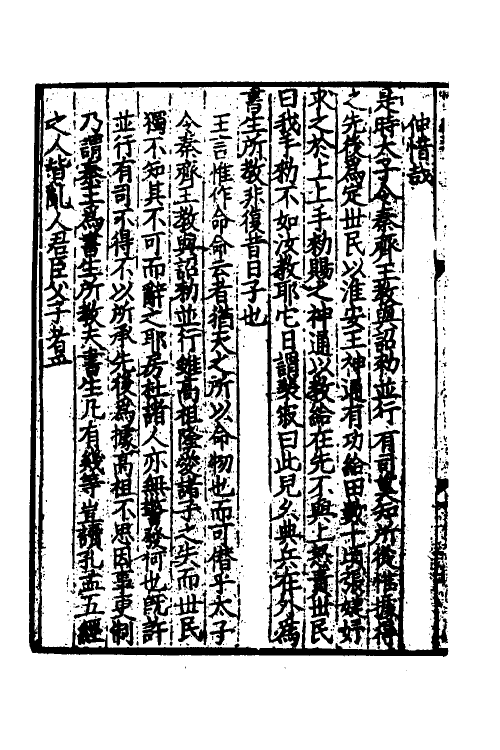 仲惜哉
是時太子令秦齊王教與詔勑並行有司莫知所從惟據得
之先後爲定世民以淮安王神通有功給田數十頃張婕妤
求之於上上手勑賜之神通以教給在先不與上怒責世民
曰我手勑不如汝教耶它日謂裴寂曰此兒久典兵在外爲
書生所教非復昔日子也
王言惟作命命云者猶天之所以命物也而可僭乎太子
令秦齊王教與詔勑並行雖高祖隆愛諸子之失而世民
獨不知其不可而辭之耶房杜諸人亦無警發何也既許
並行有司不得不以所承先後爲據高祖不思因事更制
乃謂秦王爲書生所教夫書生凡有幾等豈讀孔孟五經
之人皆亂人君臣父子者